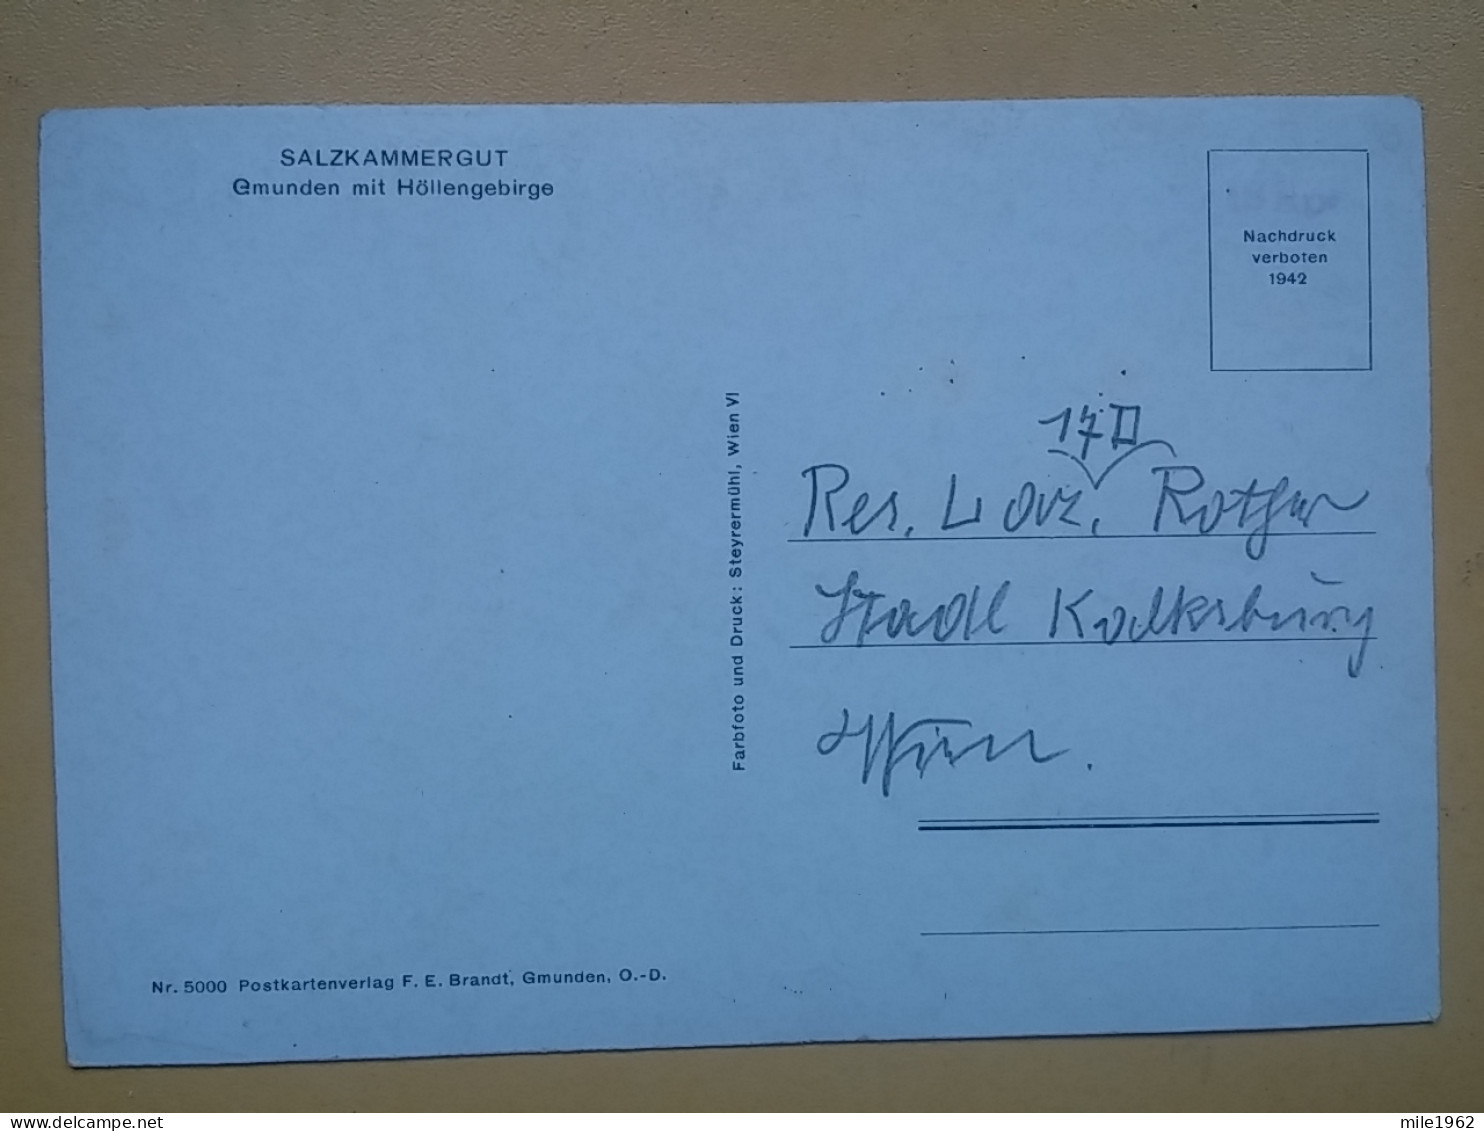 SALZKAMMERGUT
Gmunden mit Höllengebirge
Nachdruck
verboten
1942
Farbfoto und Druck: Steyrermühl, Wien VI
17 II
Res. Laz. Rother
Stadl Kalksburg
Wien.
Nr. 5000 Postkartenverlag F. E. Brandt, Gmunden, O.-D.
mile1962